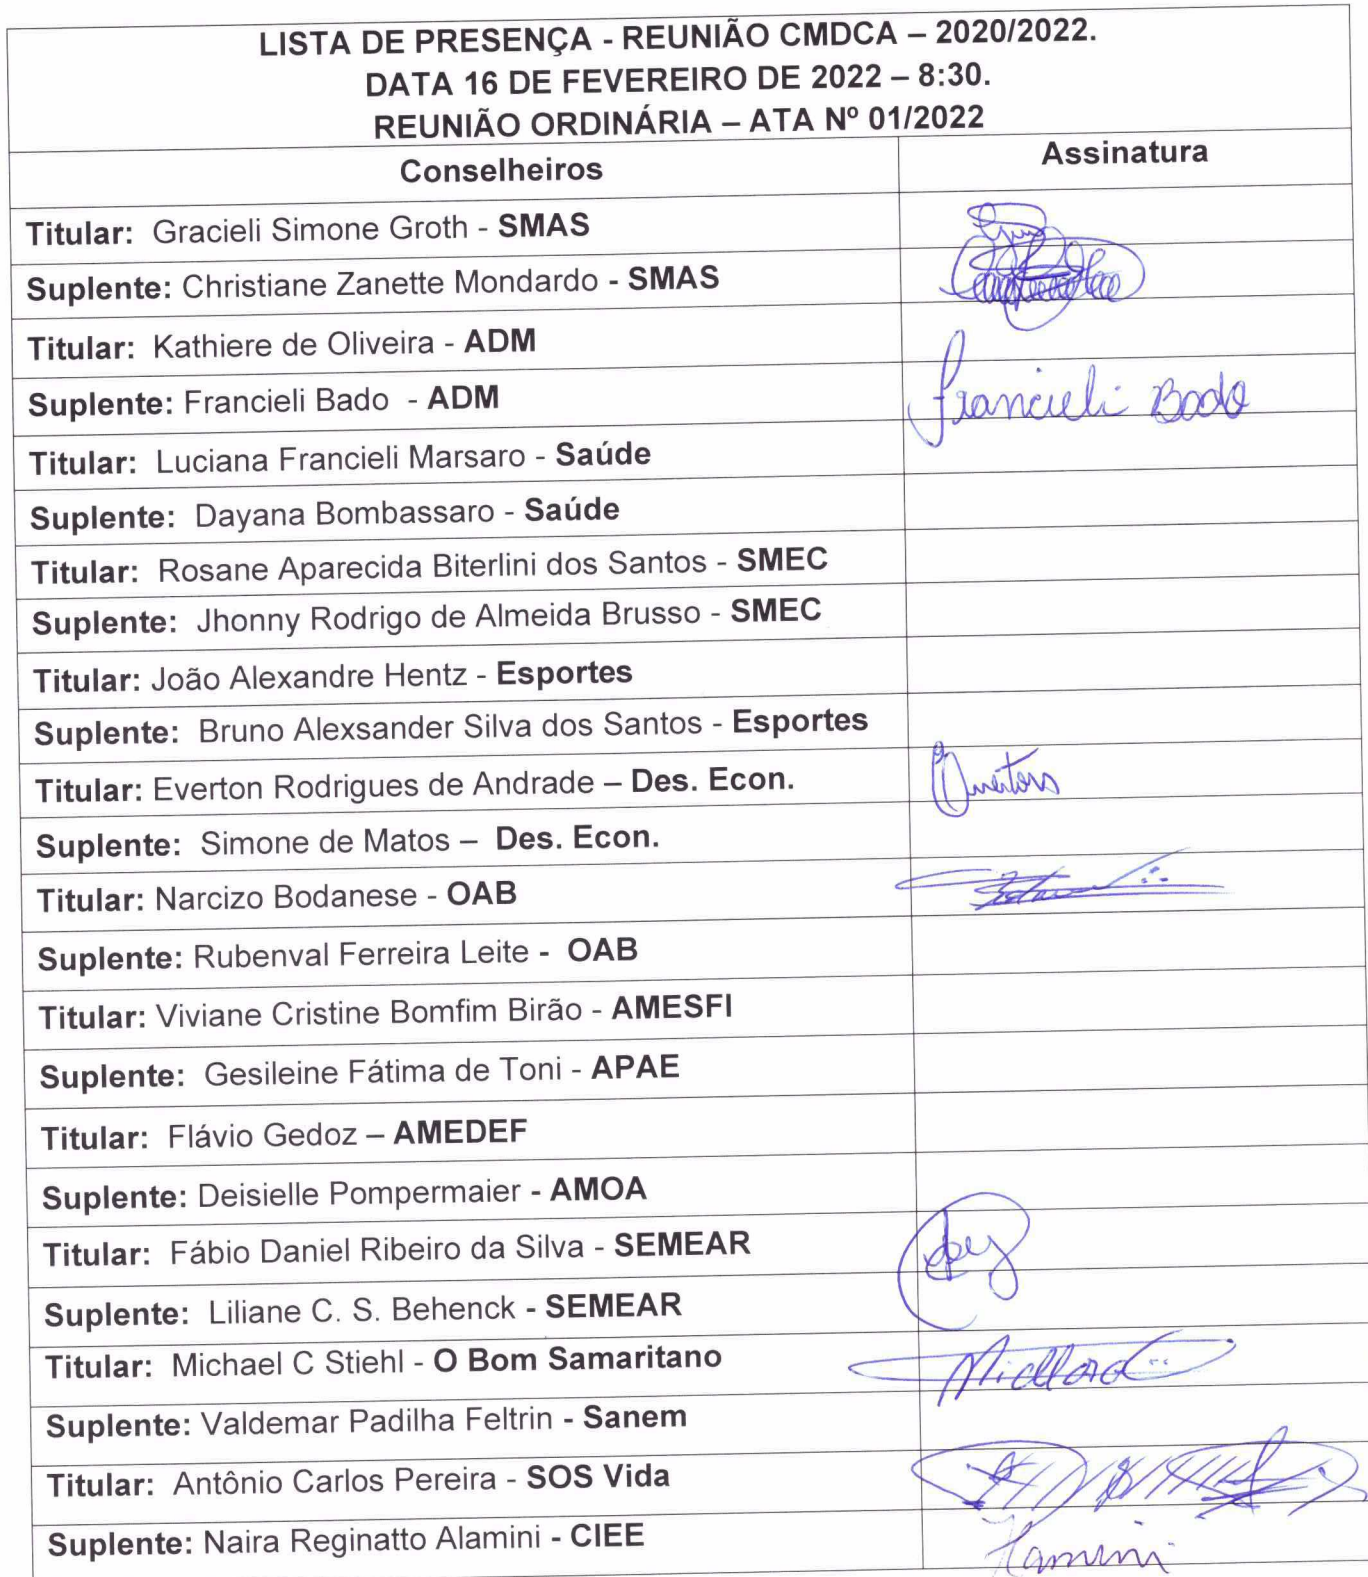 LISTA DE PRESENÇA - REUNIÃO CMDCA – 2020/2022.
DATA 16 DE FEVEREIRO DE 2022 – 8:30.
REUNIÃO ORDINÁRIA – ATA Nº 01/2022
Conselheiros Assinatura
Titular: Gracieli Simone Groth - SMAS
Suplente: Christiane Zanette Mondardo - SMAS
Titular: Kathiere de Oliveira - ADM
Suplente: Francieli Bado - ADM Francieli Bado
Titular: Luciana Francieli Marsaro - Saúde
Suplente: Dayana Bombassaro - Saúde
Titular: Rosane Aparecida Biterlini dos Santos - SMEC
Suplente: Jhonny Rodrigo de Almeida Brusso - SMEC
Titular: João Alexandre Hentz - Esportes
Suplente: Bruno Alexsander Silva dos Santos - Esportes
Titular: Everton Rodrigues de Andrade – Des. Econ.
Suplente: Simone de Matos – Des. Econ.
Titular: Narcizo Bodanese - OAB
Suplente: Rubenval Ferreira Leite - OAB
Titular: Viviane Cristine Bomfim Birão - AMESFI
Suplente: Gesileine Fátima de Toni - APAE
Titular: Flávio Gedoz – AMEDEF
Suplente: Deisielle Pompermaier - AMOA
Titular: Fábio Daniel Ribeiro da Silva - SEMEAR
Suplente: Liliane C. S. Behenck - SEMEAR
Titular: Michael C Stiehl - O Bom Samaritano
Suplente: Valdemar Padilha Feltrin - Sanem
Titular: Antônio Carlos Pereira - SOS Vida
Suplente: Naira Reginatto Alamini - CIEE